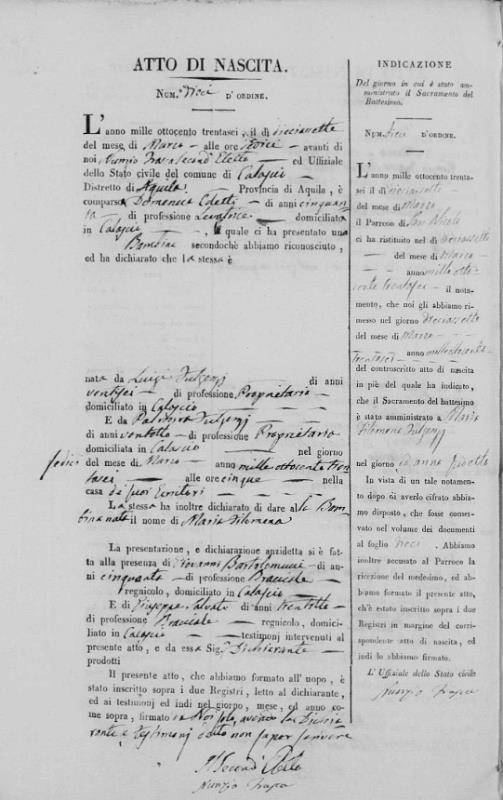 ATTO DI NASCITA.
Num.° dieci D'ORDINE.
L'anno mille ottocento trentasei, il dì diciassette
del mese di Marzo alle ore sedici avanti di
noi Nunzio Frasca Second' Eletto ed Uffiziale
dello Stato civile del comune di Calascio
Distretto di Aquila Provincia di Aquila, è
comparsa Domenica Coletti di anni cinquan
ta di professione Levatrice domiciliata
in Calascio quale ci ha presentato una
Bambina secondochè abbiamo riconosciuto,
ed ha dichiarato che la stessa è
nata da Luigi Fulgenzj di anni
ventisei di professione Proprietario
domiciliato in Calascio
E da Fulgenzj
di anni ventotto di professione Proprietaria
domiciliata in Calascio nel giorno
sedici del mese di Marzo anno mille ottocento tren
tasei alle ore cinque nella
casa de' suoi Genitori
La stessa ha inoltre dichiarato di dare al la Bam
bina nata il nome di Maria Filomena
La presentazione, e dichiarazione anzidetta si è fat-
ta alla presenza di Giovanni Bartolomucci di an-
ni cinquanta di professione Bracciale
regnicolo, domiciliato in Calascio
E di Giuseppe Salvati di anni trentotto
di professione Bracciale regnicolo, domici-
liato in Calascio testimonj intervenuti al
presente atto, e da essa Sig.ª Dichiarante
prodotti
Il presente atto, che abbiamo formato all' uopo, è
stato inscritto sopra i due Registri, letto al dichiarante,
ed ai testimonj ed indi nel giorno, mese, ed anno co-
me sopra, firmato da Noi solo, avendo la Dichia
rante e testimonj detto non saper scrivere
Il Second' Eletto
Nunzio Frasca
INDICAZIONE
Del giorno in cui è stato am-
ministrato il Sacramento del
Battesimo.
Num. dieci D'ORDINE.
L'anno mille ottocento trenta-
sei il dì diciassette
del mese di Marzo
il Parroco di San Nicola
ci ha ristituito nel dì diciassette
del mese di Marzo
anno mille otto
cento trentasei il nota-
mento, che noi gli abbiamo ri-
messo nel giorno diciassette
del mese di Marzo
trentasei anno mille ottocento
del controscritto atto di nascita
in piè del quale ha indicato,
che il Sacramento del battesimo
è stato amministrato a Maria
Filomena Fulgenzj
nel giorno ed anno sudetto
In vista di un tale notamento
dopo di averlo cifrato abbia-
mo disposto, che fosse conser-
vato nel volume dei documenti
al foglio dieci. Abbiamo
inoltre accusato al Parroco la
ricezione del medesimo, ed ab-
biamo formato il presente atto,
ch'è estato inscritto sopra i due
Registri in margine del corri-
spondente atto di nascita, ed
indi lo abbiamo firmato.
L' Uffiziale dello Stato civile
Nunzio Frasca